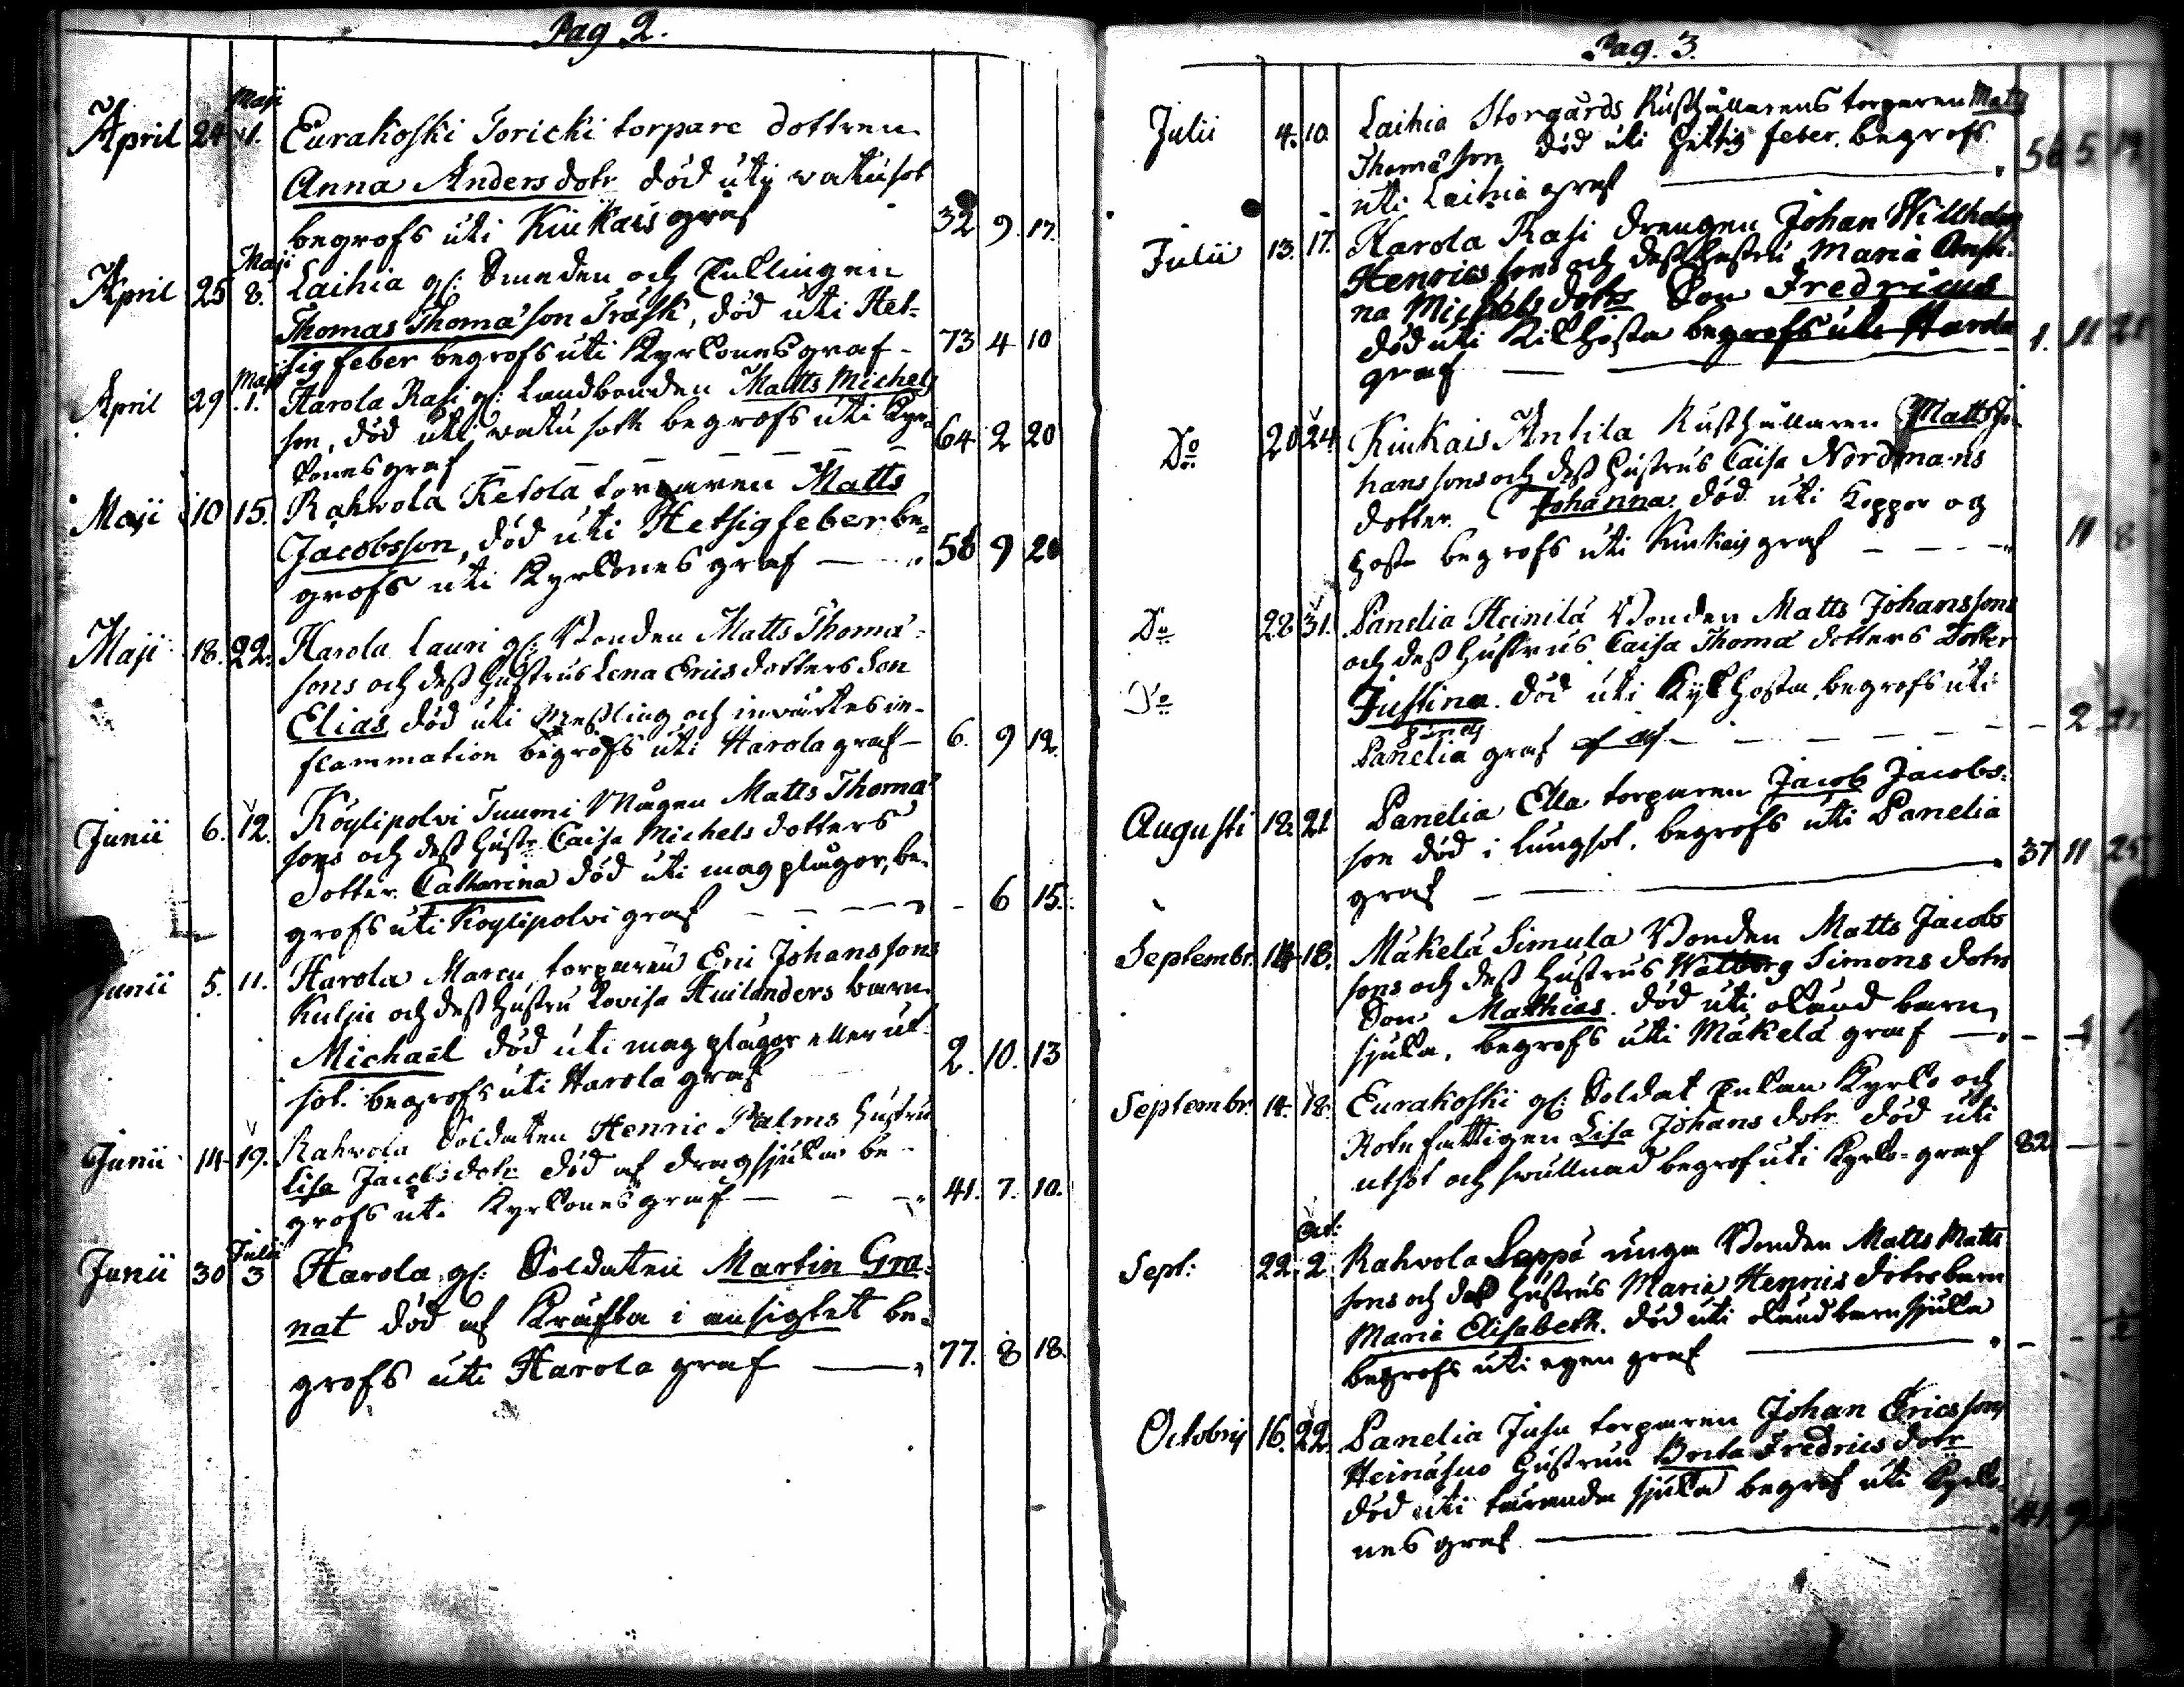 Pag 2.
Maji
April 24 1. Eurakoski Soricki torpare dottren
Anna Anders dotr död uti vatusot
begrofs uti Kiukais graf 32 9. 17.
Maji
April 25 8. Laihia gl: Smeden och
Thomas Thomæson Träsk, död uti Het-
sig feber begrofs uti Kyrkones graf - 73 4 10
Maji
April 29 1. Harola Rasi gl: Landbonden Matts Michels
son, död uti vatusott begrofs uti Kyr-
kones graf 64 2 20
Maji 10 15. Rahvola Ketola torparen Matts
Jacobsson, död uti Hetsig feber be-
grofs uti Kyrkones graf 58 9 20
Maji 18. 22. Harola Lauri gl: Bonden Matts Thomæ
sons och dess hustrus Lena Erics dotters Son
Elias död uti Messling och invärtes in-
flammation begrofs uti Harola graf - 6. 9 12.
Junii 6. 12. Köylipolvi Tuumi Mågen Matts Thomæ
sons och dess hustr Caisa Michels dotters
dotter Catharina död uti magplågor, be-
grofs uti Köylipolvi graf - 6 15.
Junii 5. 11. Harola Marcu torparen Eric Johanssons
Kulju och dess hustru Lovisa Huilanders barn
Michael död uti magplågor eller ut-
sot. begrofs uti Harola graf 2. 10. 13
Junii 14 19. Rahvola Soldaten Henric Palms hustru
Lisa Jacobsdotr död af dragsjuka be-
grofs uti Kyrkones graf - 41. 7. 10.
Julii
Junii 30 3 Harola gl: Soldaten Martin Gra-
nat död af Kräfta i ansigtet be-
grofs uti Harola graf 77. 8 18.
Pag. 3.
Julii 4. 10. Laihia Storgårds Rusthållarens torparen Matts
Thomæson död uti hettsig feber. begrofs
uti Laihia graf 5
Julii 13. 17. Harola Rasi drengen Johan Willhelm
Henricssons och dess hustru Maria
na Michels dotrs Son Fredricus
död uti Kikhosta begrofs uti Harola
graf 1. 11 21
Do 20 24. Kiukais Antila Rusthållaren Matts Jo-
hanssons och dess hustrus Caisa Nordmans
dotter Johanna död uti Koppor og
hosta begrofs uti Kiukais graf 11 8
Do 28 31. Panelia Heinilä Bonden Matts Johanssons
och dess hustrus Caisa Thomæ dotters Dotter
Do Justina död uti Kykhosta, begrofs uti
Panelia graf 2
Augusti 18. 21 Panelia Ella torparen Jacob Jacobs-
son död i lungsot. begrofs uti Panelia
graf 37 11 25
Septembr. 14 18. Mäkelä Simula Bonden Matts Jacobs
sons och dess hustrus Walborg Simons dotrs
Son Mathias död uti okänd barn
sjuka, begrofs uti Mäkelä graf
Septembr. 14. 18. Eurakoski gl: Soldat Enkan Kyrko och
Rotefattigen Lisa Johans dotr död uti
utsot och svullnad begrof uti Kyrko-graf 82
Oct:
Sept: 22. 2 Rahvola Seppä unga Bonden Matts Matts
sons och dess hustrus Maria Henrics dotrs barn
Maria Elisabeth. död uti okänd barnsjuka
begrofs uti egen graf
Octobris 16. 22. Panelia Jusu torparen Johan Ericssons
Heinäsuo hustrun Brita Fredrics dotr
död uti tärande sjuka begrof uti Kyrko-
nes graf 41 9